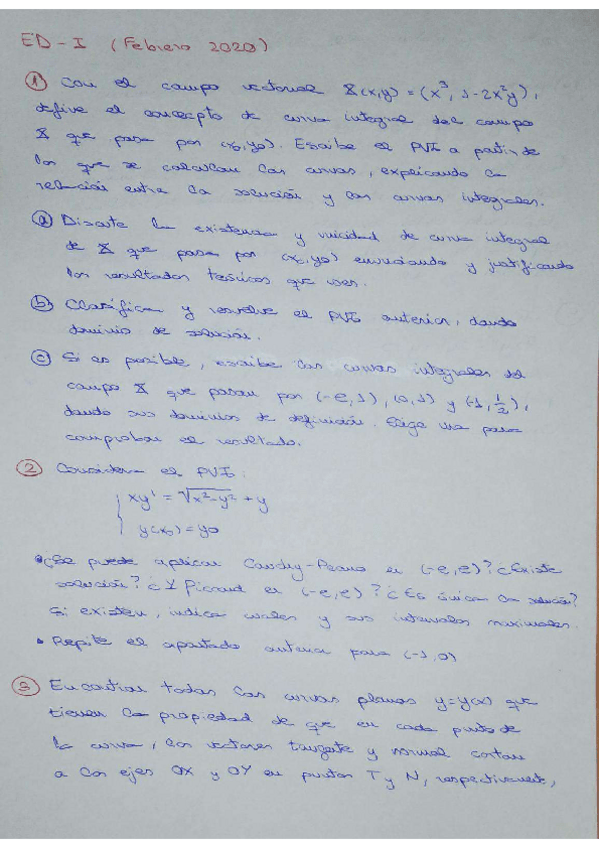 ED - I (Febrero 2020)
① Con el campo vectorial X(x,y) = (x³, 1-2x²y),
define el concepto de curva integral del campo
X que pasa por (x₀,y₀). Escribe el PVI a partir de
los que se calculan las curvas, explicando la
relación entre la solución y las curvas integrales.
ⓐ Discute la existencia y unicidad de curva integral
de X que pasa por (x₀,y₀) enunciando y justificando
los resultados teóricos que uses.
ⓑ Clasifica y resuelve el PVI anterior, dando
dominio de solución.
ⓒ Si es posible, escribe las curvas integrales del
campo X que pasan por (-e,1), (0,1) y (-1, 1/2),
dando sus dominios de definición. Elige una para
comprobar el resultado.
② Considera el PVI:
{ xy' = √(x²-y²) + y
y(x₀) = y₀
• ¿Se puede aplicar Cauchy-Peano en (-e,e)? ¿Existe
solución? ¿Y Picard en (-e,e)? ¿Es única la solución?
Si existen, indica cuales y sus intervalos maximales.
• Repite el apartado anterior para (-1,0)
③ Encontrar todas las curvas planas y=y(x) que
tienen la propiedad de que en cada punto de
la curva, los vectores tangente y normal cortan
a los ejes OX y OY en puntos T y N, respectivamente,